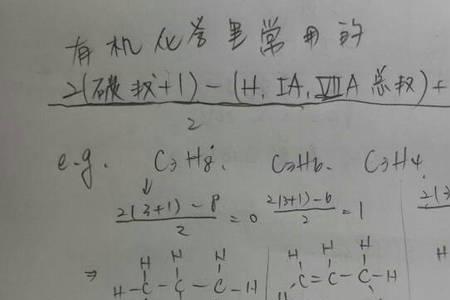 有机化学里常用的
2(碳数+1)-(H, IA, VIIA 总数)+
2
e.g. C3H8, C3H6, C3H4
2(3+1)-8 / 2 = 0 2(3+1)-6 / 2 = 1 2(3
⇒ H H H H H H H
H-C-C-C-H C=C-C-